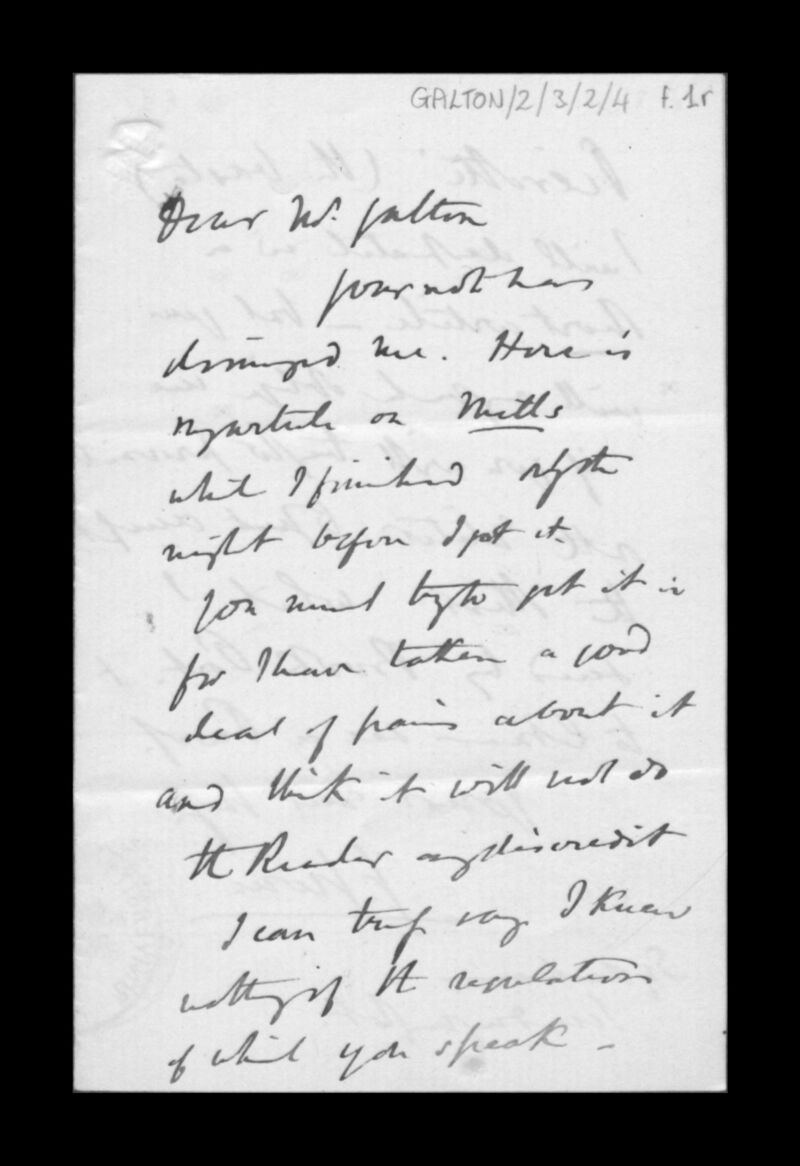 GALTON/2/3/2/4 f. 1r
Dear Mr. Galton
Your note has
dismayed me. Here is
my article on Mills
which I finished only the
night before I got it.
You must try to get it in
for I have taken a good
deal of pains about it
and think it will not do
the Reader any discredit
I can truly say I knew
nothing of the regulations
of which you speak –